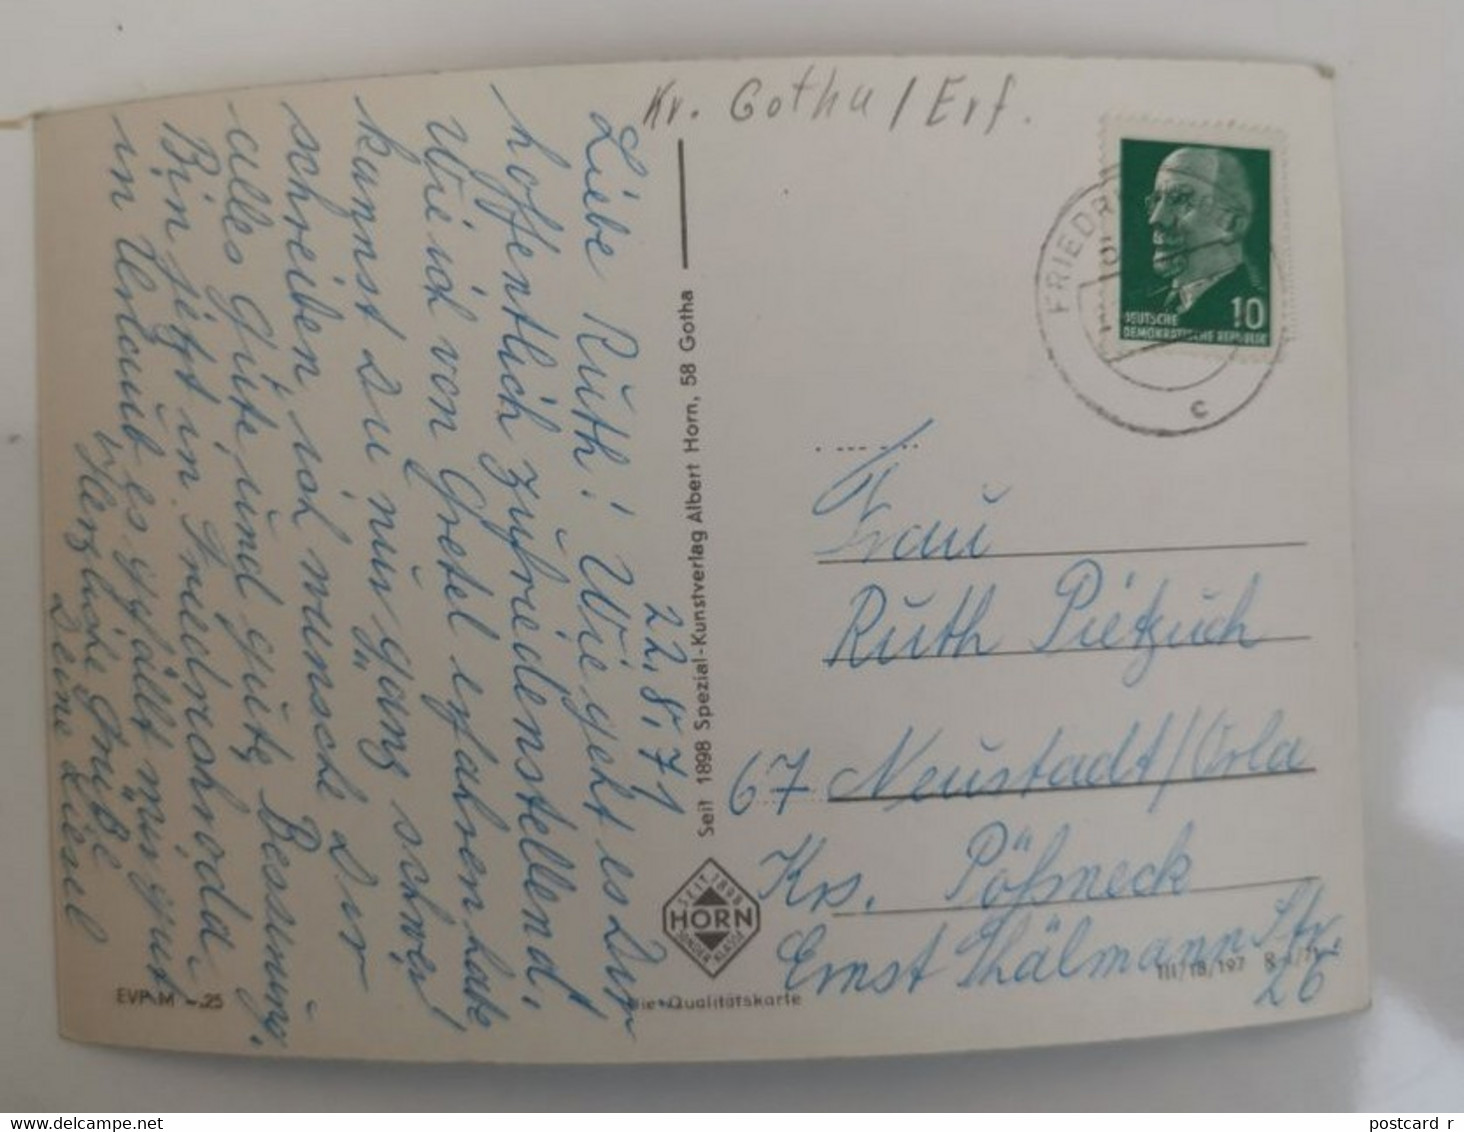 Kr. Gotha / Erf.
22.8.71
Liebe Ruth! Wie geht es Dir
hoffentlich zufriedenstellend,
Wie ich von Gretel erfahren hab,
kannst Du nur ganz schwer
schreiben, ich wünsche Dir
alles Gute und gute Besserung,
Bin jetzt in Friedrichroda
in Urlaub es gefällt mir gut
Herzliche Grüße
Deine Liesel
FRIEDR
10
DEUTSCHE
DEMOKRATISCHE REPUBLIK
c
Frau
Ruth Pietzuch
67 Neustadt/Orla
Krs. Pößneck
Ernst Thälmann Str.
26
Seit 1898 Spezial-Kunstverlag Albert Horn, 58 Gotha
SEIT 1898
HORN
SONDER KLASSE
Die Qualitätskarte
EVP M -.25
III/18/197
postcard r